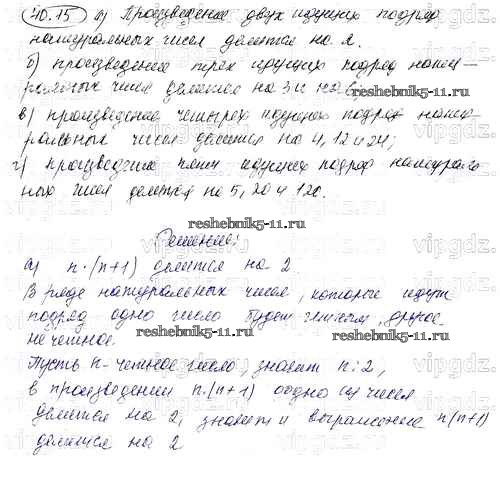 40.15 а) Произведение двух идущих подряд
натуральных чисел делится на 2.
б) произведение трех идущих подряд нату-
ральных чисел делится на 3 и на 6;
reshebnik5-11.ru
в) произведение четырех идущих подряд нату-
ральных чисел делится на 4, 12 и 24;
г) произведение пяти идущих подряд натураль-
ных чисел делится на 5, 20 и 120.
reshebnik5-11.ru
Решение:
а) n·(n+1) делится на 2.
В ряде натуральных чисел, которые идут
подряд одно число будет четным, другое
нечетное.
reshebnik5-11.ru
Пусть n - четное число, значит n:2,
в произведении n·(n+1) одно из чисел
делится на 2, значит и выражение n(n+1)
делится на 2
vipgdz.